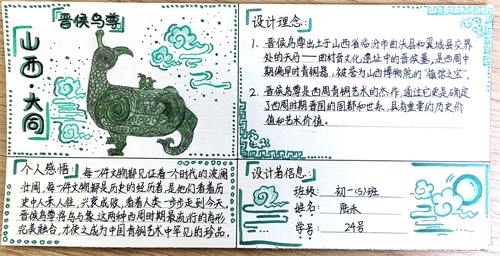 晋侯鸟尊
山西·大同
设计理念：
1、晋侯鸟尊出土于山西省临汾市曲沃县和翼城县交界
处的天马——曲村晋文化遗址中的晋侯墓，是西周中
期偏早的青铜器，被誉为山西博物院的“镇馆之宝”。
2、晋侯鸟尊是西周青铜艺术的杰作，通过它更足确定
了西周时期晋国的国都和世系，具有重要的历史价
值和艺术价值。
个人感悟：每一件文物都见证着一个时代的波澜
壮阔，每一件文物都是历史的经历者，是他们看着历
史中人来人往，兴衰成败，看着人类一步步走到今天，
晋侯鸟尊将鸟与象这两种西周时期最流行的肖形
完美融合，才使之成为中国青铜艺术中罕见的珍品。
设计者信息：
班级：初一(5)班
姓名：陆禾
学号：24号